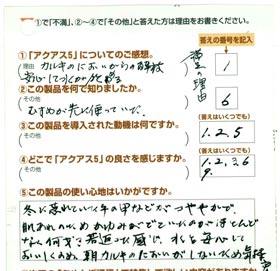 ①で『不満』、②~④で『その他』と答えた方は理由をお書きください。
答えの番号を記入
①「アクアス5」についてのご感想。
理由 カルキのにおいからの解放
安心してつかから使える
満足の理由
1
②この製品を何で知りましたか。
その他
むすめが先に使っていた。
6
③この製品を導入された動機は何ですか。
その他
(答えはいくつでも)
1.2.5
④どこで「アクアス5」の良さを感じますか。
その他
(答えはいくつでも)
1.2.3.6
9.
⑤この製品の使い心地はいかがですか。
冬に荒れていた手の甲などがつやつやで、
肌あれのためかゆみがでていたのがほとんど
なく何才も若返った感じ。水も安心して
おいしくのめ、朝カルキのにおいがしないため